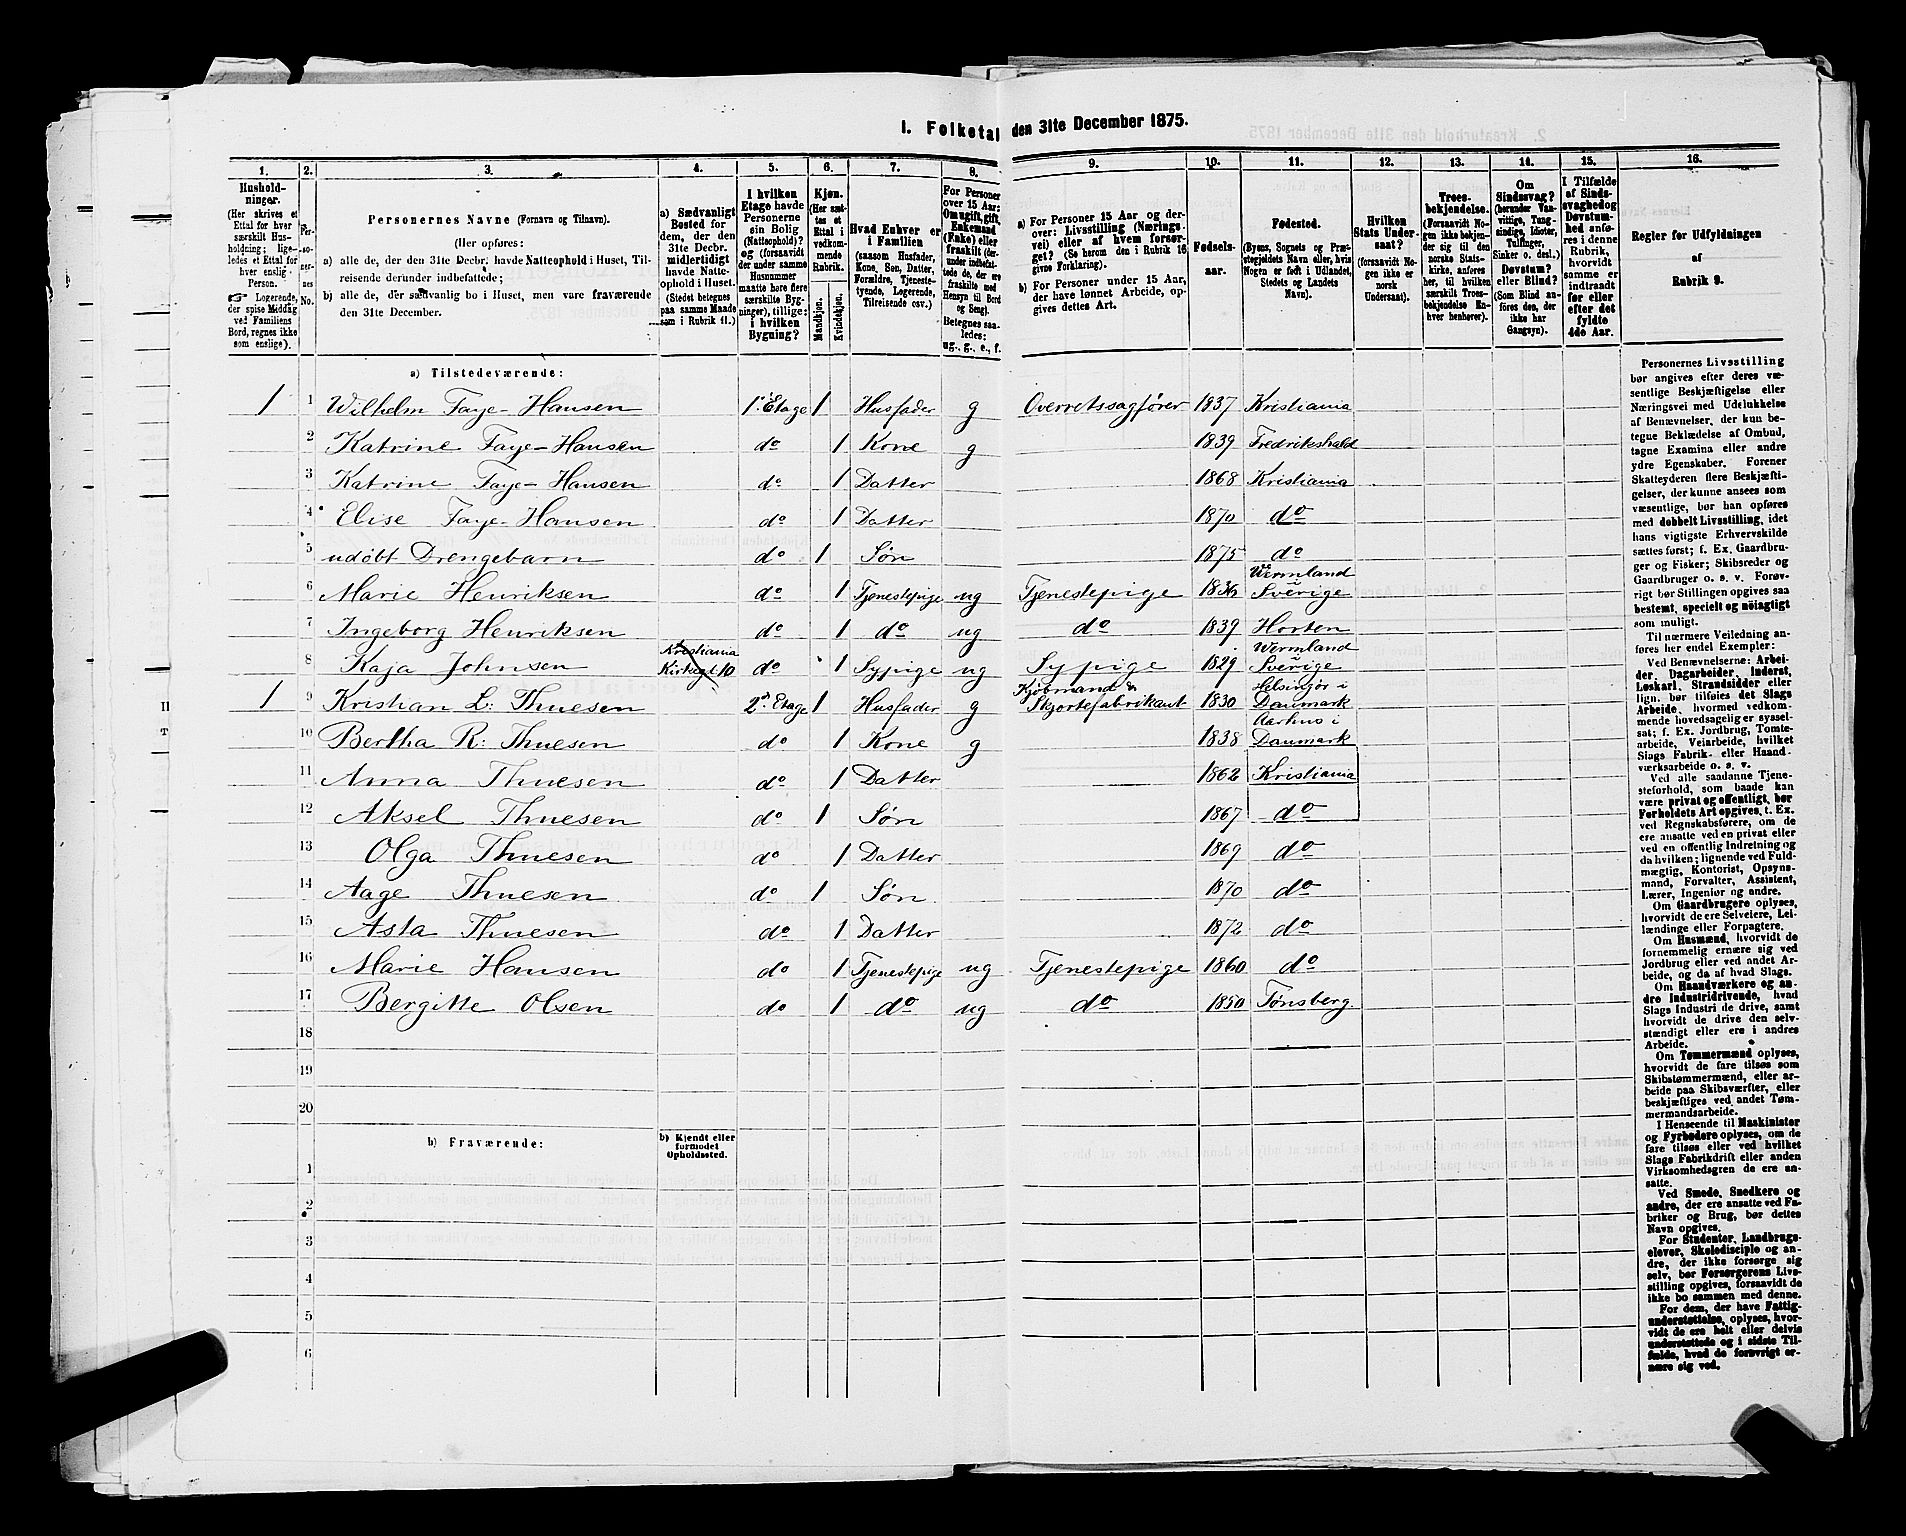 1. Folketal den 31te December 1875.
1. 2. 3. 4. 5. 6. 7. 8. 9. 10. 11. 12. 13. 14. 15. 16.
Hushold-
ninger.
(Her skrives et
Ettal for hver
særskilt Hus-
holdning; lige-
ledes et Ettal for
hver enslig
Person.
☞ Logerende,
der spise Middag
ved Familiens
Bord, regnes ikke
som enslige).
Per-
so-
ner-
nes
No.
Personernes Navne (Fornavn og Tilnavn).
(Her opføres:
a) alle de, der den 31te Decbr. havde Natteophold i Huset, Til-
reisende derunder indbefattede;
b) alle de, der sædvanlig bo i Huset, men vare fraværende
den 31te December.
a) Sædvanligt
Bosted for
dem, der den
31te Decbr.
midlertidigt
havde Natte-
ophold i Huset.
(Stedet betegnes
paa samme Maade
som i Rubrik 11.)
I hvilken
Etage havde
Personerne
sin Bolig
(Natteophold)?
og (forsaavidt
der under samme
Husnummer
maatte høre flere
særskilte Byg-
ninger), tillige:
i hvilken
Bygning?
Kjøn.
(Her sæt-
tes et
Ettal i
vedkom-
mende
Rubrik.
Mandkjøn.
Kvindekjøn.
Hvad Enhver er
i Familien
(saasom Husfader,
Kone, Søn, Datter,
Forældre, Tjeneste-
tyende, Logerende,
Tilreisende osv.)
For Personer
over 15 Aar:
Om ugift, gift,
Enkemand
(Enke) eller
fraskilt (der-
under indbefat-
tede de, der ere
fraskilte med
Hensyn til Bord
og Seng).
Betegnes saa-
ledes:
ug., g., e., f.
a) For Personer 15 Aar og der-
over: Livsstilling (Nærings-
vei) eller af hvem forsør-
get? (Se herom den i Rubrik 16
givne Forklaring).
b) For Personer under 15 Aar,
der have lønnet Arbeide, op-
gives dettes Art.
Fødsels-
aar.
Fødested.
(Byens, Sognets og Præ-
stegjeldets Navn eller, hvis
Nogen er født i Udlandet,
Stedets og Landets
Navn).
Hvilken
Stats Under-
saat?
(forsaavidt No-
gen ikke er
norsk
Undersaat).
Troes-
bekjendelse.
(Forsaavidt No-
gen ikke bekjen-
der sig til den
norske Stats-
kirke, anføres
her, til hvilken
særskilt Troes-
bekjendelse En-
hver henhører).
Om
Sindssvag?
(herunder Van-
vittige, Tung-
sindige, Idioter,
Tullinger,
Sinker o. desl.)
Døvstum?
eller Blind?
(Som Blind an-
føres den, der
ikke har
Gangsyn).
I Tilfælde
af Sinds-
svaghed og
Døvstum-
hed anfø-
res i denne
Rubrik,
hvorvidt
samme er
indtraadt
før eller
efter det
fyldte
4de Aar.
Regler for Udfyldningen
af
Rubrik 9.
a) Tilstedeværende:
1 1 Wilhelm Faye-Hansen 1. Etage 1 Husfader g Overretssagfører 1837 Kristiania
2 Katrine Faye-Hansen do 1 Kone g 1839 Fredrikshald
3 Katrine Faye-Hansen do 1 Datter 1868 Kristiania
4 Elise Faye-Hansen do 1 Datter 1870 do
5 udøbt Drengebarn do 1 Søn 1875 do
6 Marie Henriksen do 1 Tjenestepige ug Tjenestepige 1836 Wermland Sverige
7 Ingeborg Henriksen do 1 do ug do 1839 Horten
8 Kaja Johnsen Kristiania Kirkegt. 10 do 1 Sypige ug Sypige 1829 Wermland Sverige
1 9 Kristian L: Thuesen 2. Etage 1 Husfader g Kjøbmand & Skjortefabrikant 1830 Helsingör i Danmark
10 Bertha R: Thuesen do 1 Kone g 1838 Aarhus i Danmark
11 Anna Thuesen do 1 Datter 1862 Kristiania
12 Aksel Thuesen do 1 Søn 1867 do
13 Olga Thuesen do 1 Datter 1869 do
14 Aage Thuesen do 1 Søn 1870 do
15 Asta Thuesen do 1 Datter 1872 do
16 Marie Hansen do 1 Tjenestepige ug Tjenestepige 1860 do
17 Bergitte Olsen do 1 do ug do 1850 Tønsberg.
18
19
20
b) Fraværende:
b) Kjendt eller
formodet
Opholdssted.
1
2
3
4
5
6
Personernes Livsstilling
bør angives efter deres væ-
sentlige Beskjæftigelse eller
Næringsvei med Udelukkelse
af Benævnelser, der kun be-
tegne Beklædelse af Ombud,
tagne Examina eller andre
ydre Egenskaber. Forener
Skatteyderen flere Beskjæfti-
gelser, der kunne ansees som
væsentlige, bør han opføres
med dobbelt Livsstilling, idet
hans vigtigste Erhvervskilde
sættes først; f. Ex. Gaardbru-
ger og Fisker; Skibsreder og
Gaardbruger o. s. v. Forøv-
rigt bør Stillingen opgives saa
bestemt, specielt og nøiagtigt
som muligt.
Til nærmere Veiledning an-
føres her endel Exempler:
Ved Benævnelserne: Arbei-
der, Dagarbeider, Inderst,
Løskarl, Strandsidder eller
lign. bør tilføies det Slags
Arbeide, hvormed vedkom-
mende hovedsagelig er syssel-
sat; f. Ex. Jordbrug, Tomte-
arbeide, Veiarbeide, hvilket
Slags Fabrik- eller Haand-
værksarbeide o. s. v.
Ved alle saadanne Tjene-
steforhold, som baade kan
være privat og offentligt, bør
Forholdets Art opgives, t. Ex.
ved Regnskabsførere, om de
ere ansatte ved en privat eller
ved en offentlig Indretning og
da hvilken; lignende ved Fuld-
mægtig, Kontorist, Opsyns-
mand, Forvalter, Assistent,
Lærer, Ingeniør og andre.
Om Gaardbrugere oplyses,
hvorvidt de ere Selveiere, Lei-
lændinge eller Forpagtere.
Om Husmænd, hvorvidt de
fornemmelig ernære sig ved
Jordbrug eller ved andet Ar-
beide, og da af hvad Slags.
Om Haandværkere og an-
dre Industridrivende, hvad
Slags Industri de drive, samt
hvorvidt de drive den selv-
stændigt eller ere i andres
Arbeide.
Om Tømmermænd oplyses,
hvorvidt de fare tilsøs som
Skibstømmermænd, eller ar-
beide paa Skibsværfter, eller
beskjæftiges ved andet Tøm-
mermandsarbeide.
I Henseende til Maskinister
og Fyrbødere oplyses, om de
fare tilsøs eller ved hvilket
Slags Fabrikdrift eller anden
Virksomhedsgren de ere an-
satte.
Ved Smede, Snedkere og
andre, der ere ansatte ved Fa-
briker og Brug, bør dettes
Navn opgives.
For Studenter, Landbrugs-
elever, Skoledisciple og an-
dre, der ikke forsørge sig
selv, bør Forsørgerens Livs-
stilling opgives, forsaavidt de
ikke bo sammen med denne.
For dem, der have Fattig-
understøttelse, oplyses, hvor-
vidt de ere helt eller delvis
understøttede og i sidste Til-
fælde, hvad de forøvrigt er-
nære sig ved.